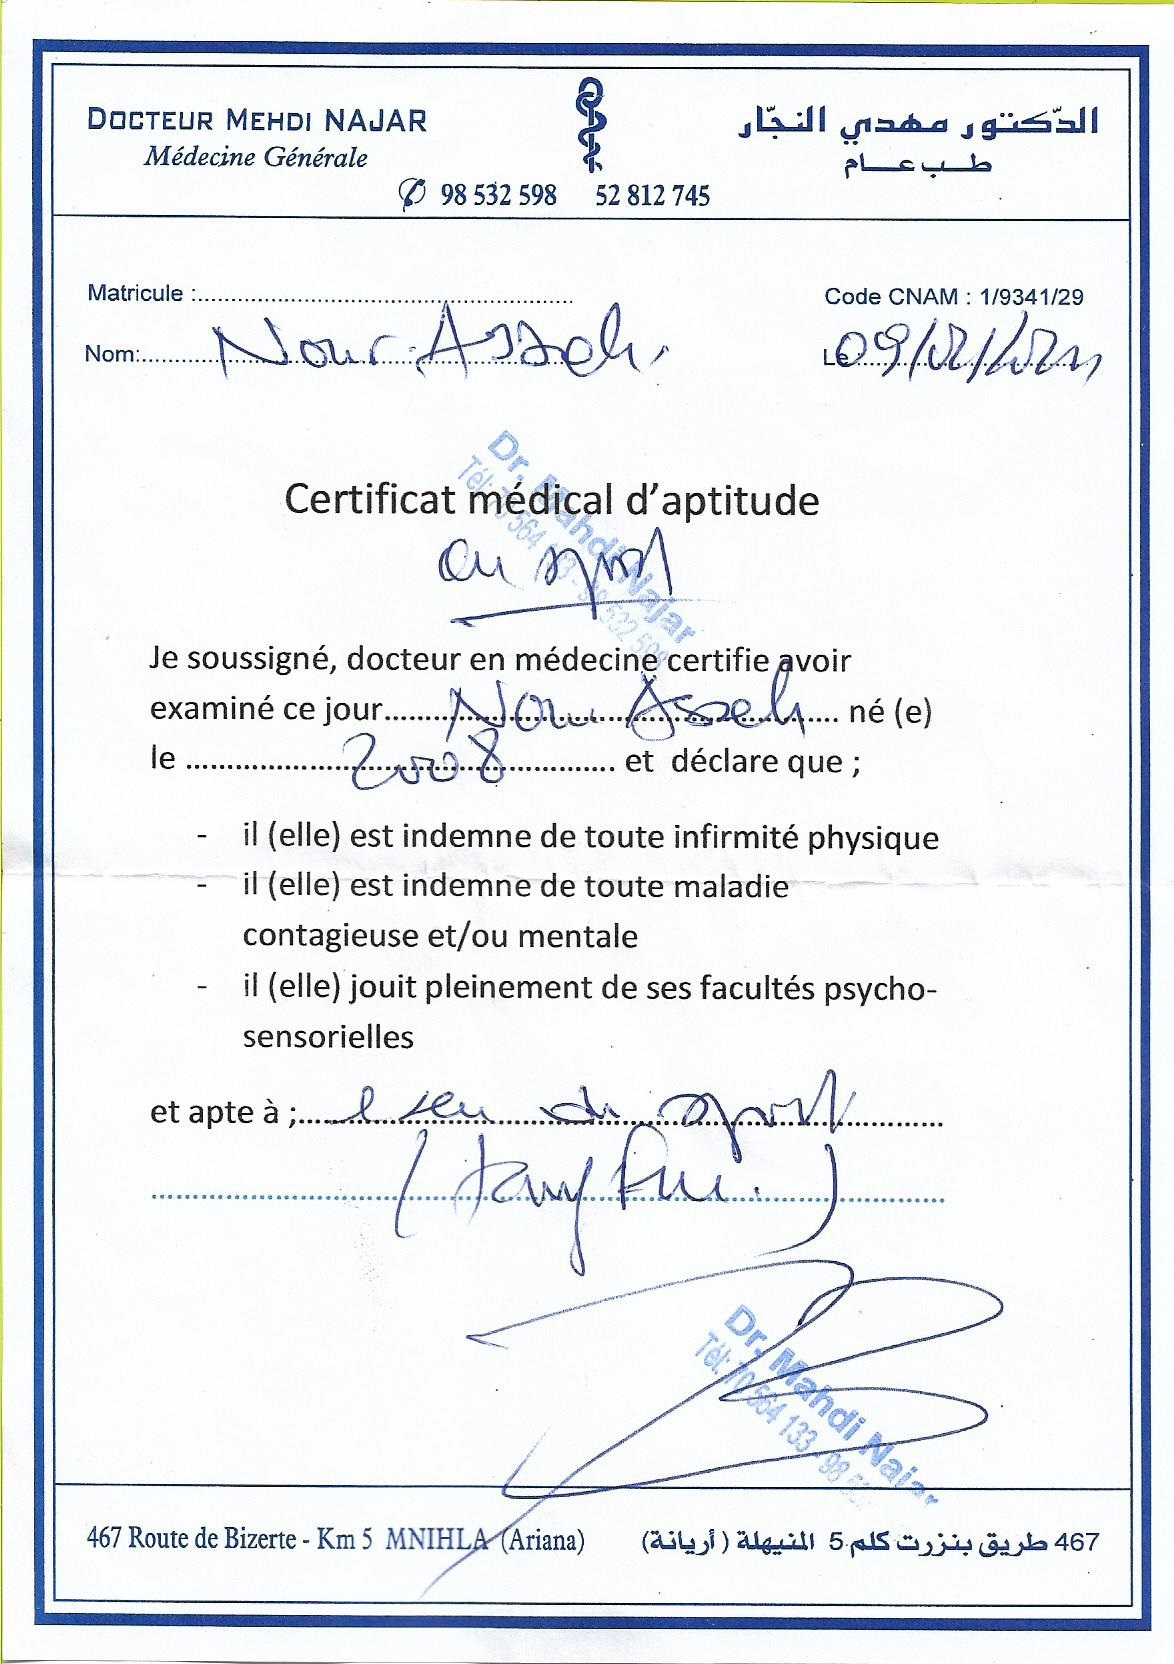 DOCTEUR MEHDI NAJAR
Médecine Générale
الدّكتور مهدي النجّار
طب عام
98 532 598 52 812 745
Matricule :
Code CNAM : 1/9341/29
Nom: Nour Asseh
Le 09/02/
Certificat médical d'aptitude
au sport
Dr. Mahdi Najar
Tél: 70 564 133 - 98 532 598
Je soussigné, docteur en médecine certifie avoir
examiné ce jour Nour Asseh né (e)
le 2008 et déclare que ;
- il (elle) est indemne de toute infirmité physique
- il (elle) est indemne de toute maladie
contagieuse et/ou mentale
- il (elle) jouit pleinement de ses facultés psycho-
sensorielles
et apte à ; du sport
Dr. Mahdi Najar
Tél: 70 564 133 - 98
467 Route de Bizerte - Km 5 MNIHLA (Ariana)
467 طريق بنزرت كلم 5 المنيهلة (أريانة)